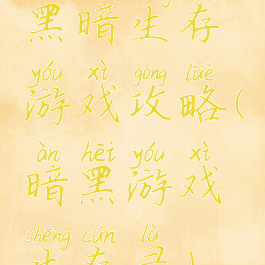 黑暗生存
yóu xì gōng lüè
游戏攻略(
àn hēi yóu xì
暗黑游戏
shēng cún lù
生存录)